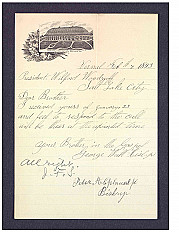 Vernal Feb 12 1898
President Wilford Woodruff
Salt Lake City
Dear Brother
I received yours of January 22
and feel to respond to the call
and will be there at the appointed time
Your Brother in the Gospel
George
All right
J. F. S.
Bishop